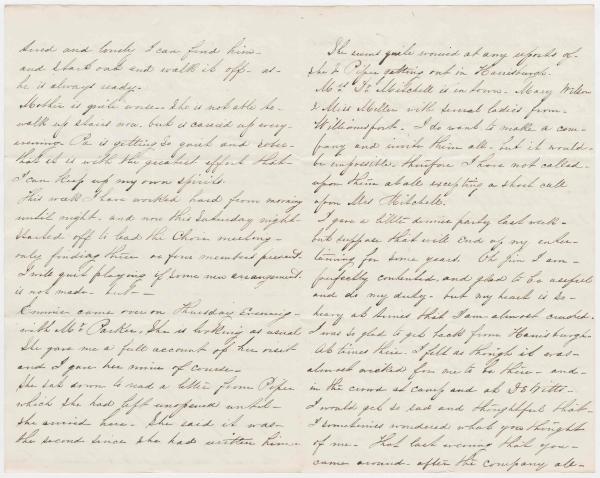 tired and lonely I can find him-
and start out and walk it off- as-
he is always ready-
Mother is quite worse- she is not able to-
walk up stairs now. but is carried up every-
evening. Pa is getting so quiet and
that it is with the greatest effort that-
I can keep up my own spirits.
This week I have worked hard from morning
until night. and now this Saturday night-
started off to lead the Choir meeting-
only finding three or four members present.
I will quit playing if some new arrangement
is not made- but-
Emmie came over on Thursday Evening-
with Mr Parker. She is looking as usual
She gave me a full account of her visit
and I gave her mine of course-
She sat down to read a letter from Pipe
which she had left unopened until-
she arrived here- She said it was-
the second since she had written him-
She seems quite worried at any reports of-
she & Pipe getting out in Harrisburgh.
Mrs Dr Mitchell is in town. Mary Wilson
& Miss Miller with several ladies from-
Williamsport. I do want to make a com-
pany and invite them all- but it would-
be impossible. therefore I have not called-
upon them at all excepting a short call
upon Mrs Mitchell.
I gave a little dinner party last week-
but suppose that will end up my enter-
taining for some years. Oh Jim I am-
perfectly contented, and glad to be useful
and do my duty- but my heart is so-
heavy at times that I am almost crushed.
I was so glad to get back from Harrisburgh.
At times there. I felt as though it was-
almost wicked for me to be there- and-
in the crowd at camp and at DeWitts-
I would get so sad and thoughtful that-
I sometimes wondered what you thought
of me- That last evening that you-
came around- after the company all-